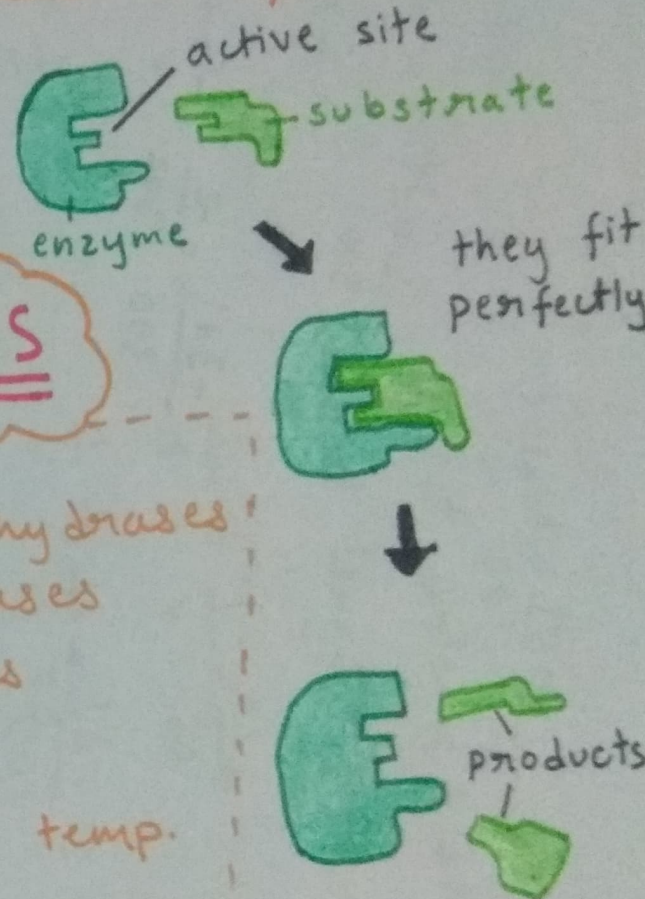 active site
substrate
enzyme
they fit
perfectly
S
hydrases
ases
s
products
temp.